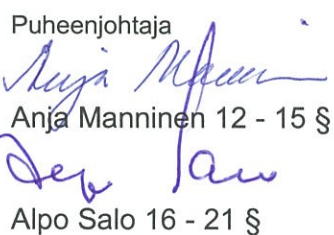 Puheenjohtaja
Anja Manninen
Anja Manninen 12 - 15 §
Alpo Salo
Alpo Salo 16 - 21 §